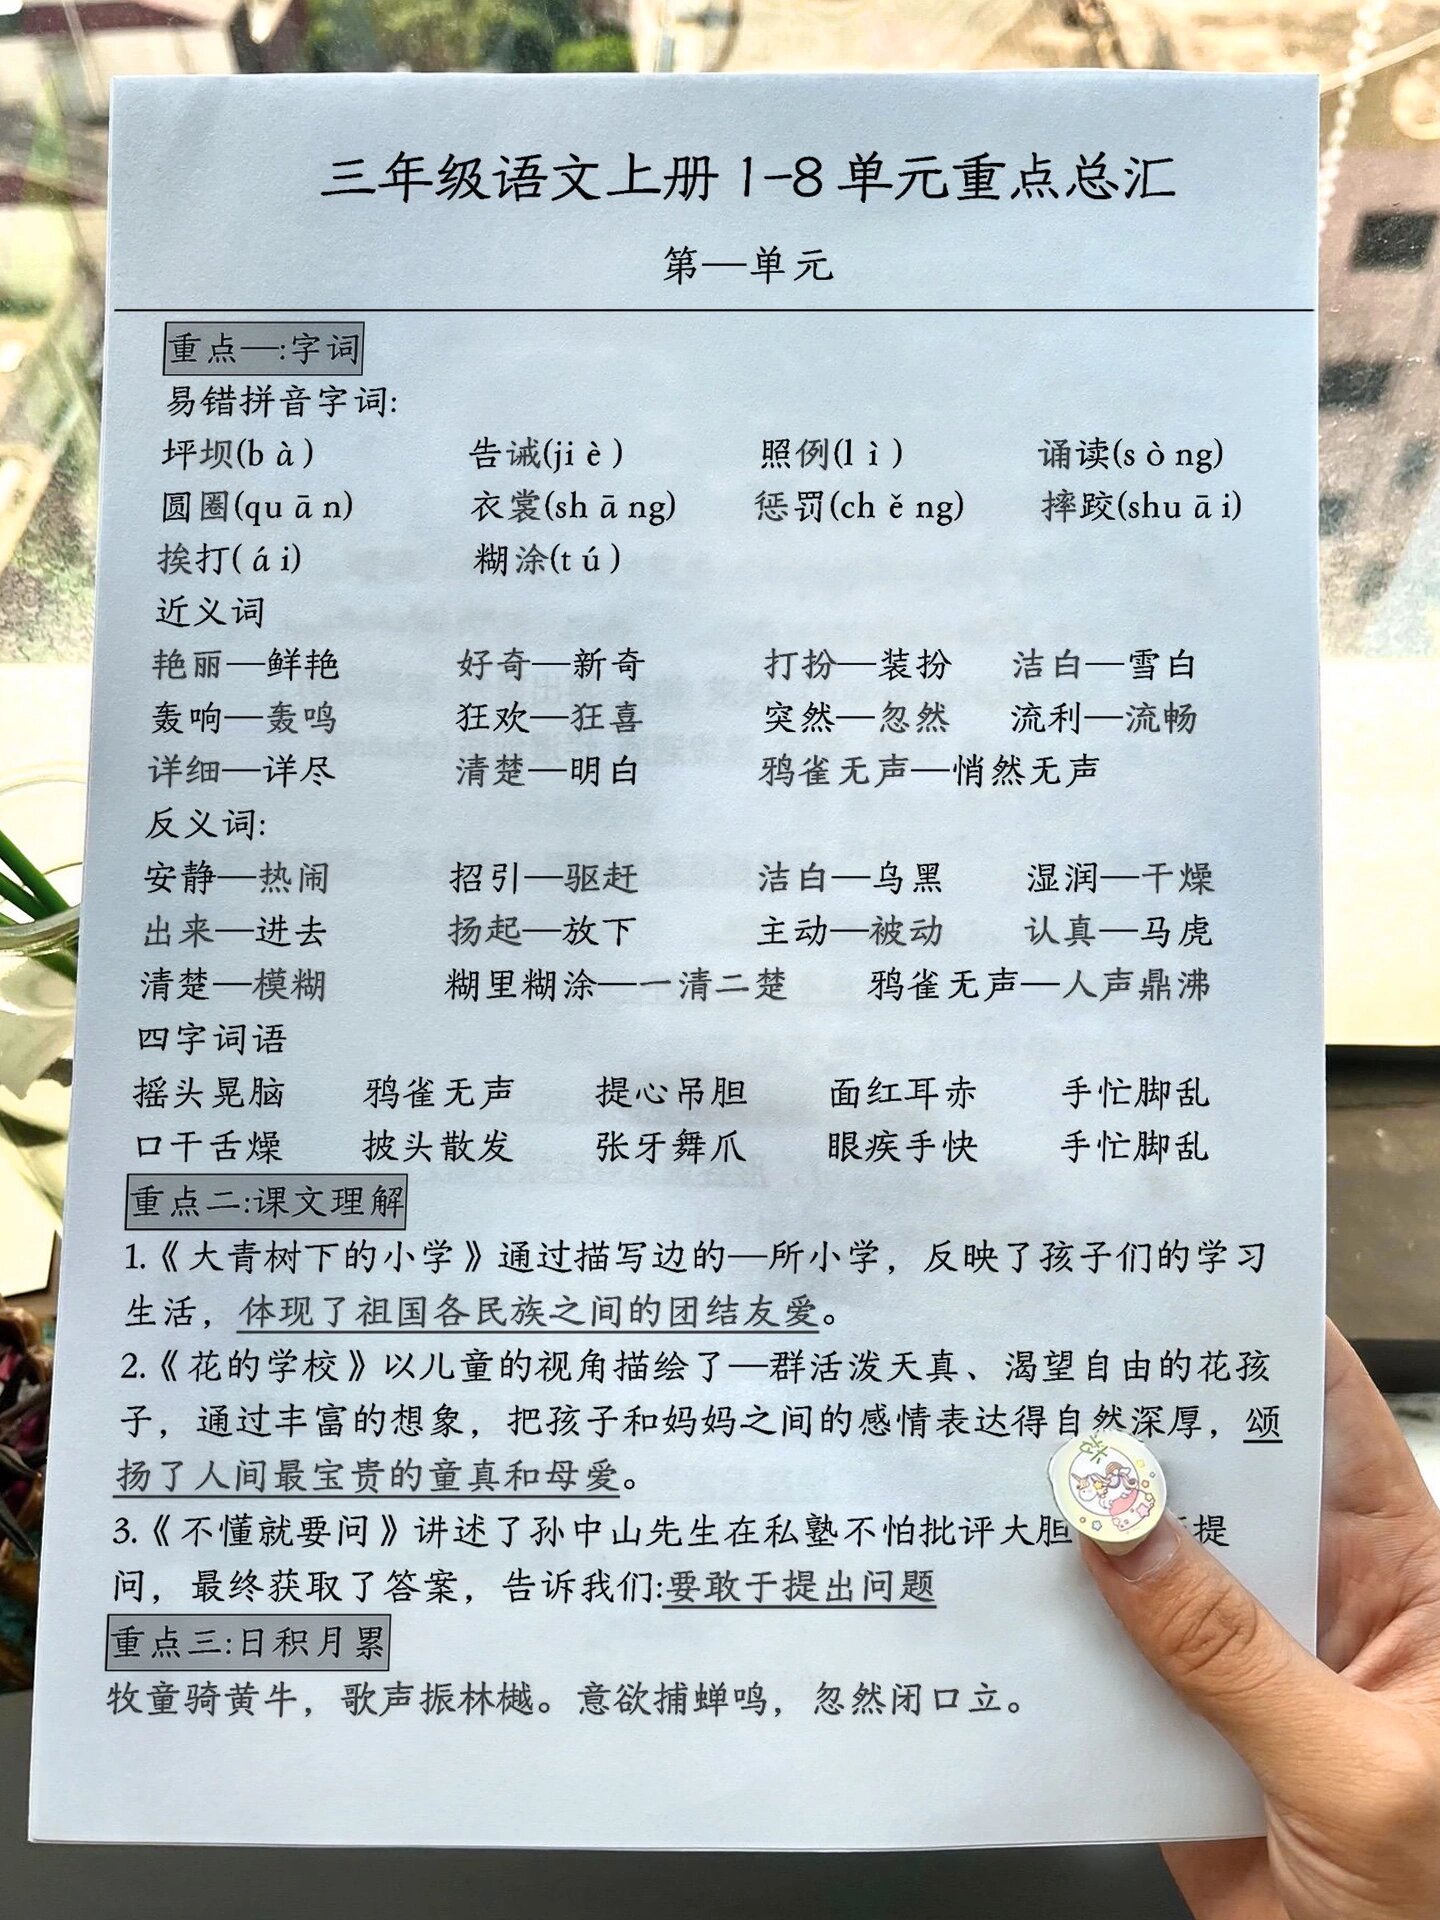 三年级语文上册1-8单元重点总汇
第一单元
重点一:字词
易错拼音字词:
坪坝(bà) 告诫(jiè) 照例(lì) 诵读(sòng)
圆圈(quān) 衣裳(shāng) 惩罚(chěng) 摔跤(shuāi)
挨打(ái) 糊涂(tú)
近义词
艳丽—鲜艳 好奇—新奇 打扮—装扮 洁白—雪白
轰响—轰鸣 狂欢—狂喜 突然—忽然 流利—流畅
详细—详尽 清楚—明白 鸦雀无声—悄然无声
反义词:
安静—热闹 招引—驱赶 洁白—乌黑 湿润—干燥
出来—进去 扬起—放下 主动—被动 认真—马虎
清楚—模糊 糊里糊涂—一清二楚 鸦雀无声—人声鼎沸
四字词语
摇头晃脑 鸦雀无声 提心吊胆 面红耳赤 手忙脚乱
口干舌燥 披头散发 张牙舞爪 眼疾手快 手忙脚乱
重点二:课文理解
1.《大青树下的小学》通过描写边的一所小学，反映了孩子们的学习
生活，体现了祖国各民族之间的团结友爱。
2.《花的学校》以儿童的视角描绘了一群活泼天真、渴望自由的花孩
子，通过丰富的想象，把孩子和妈妈之间的感情表达得自然深厚，颂
扬了人间最宝贵的童真和母爱。
3.《不懂就要问》讲述了孙中山先生在私塾不怕批评大胆提
问，最终获取了答案，告诉我们:要敢于提出问题
重点三:日积月累
牧童骑黄牛，歌声振林樾。意欲捕蝉鸣，忽然闭口立。